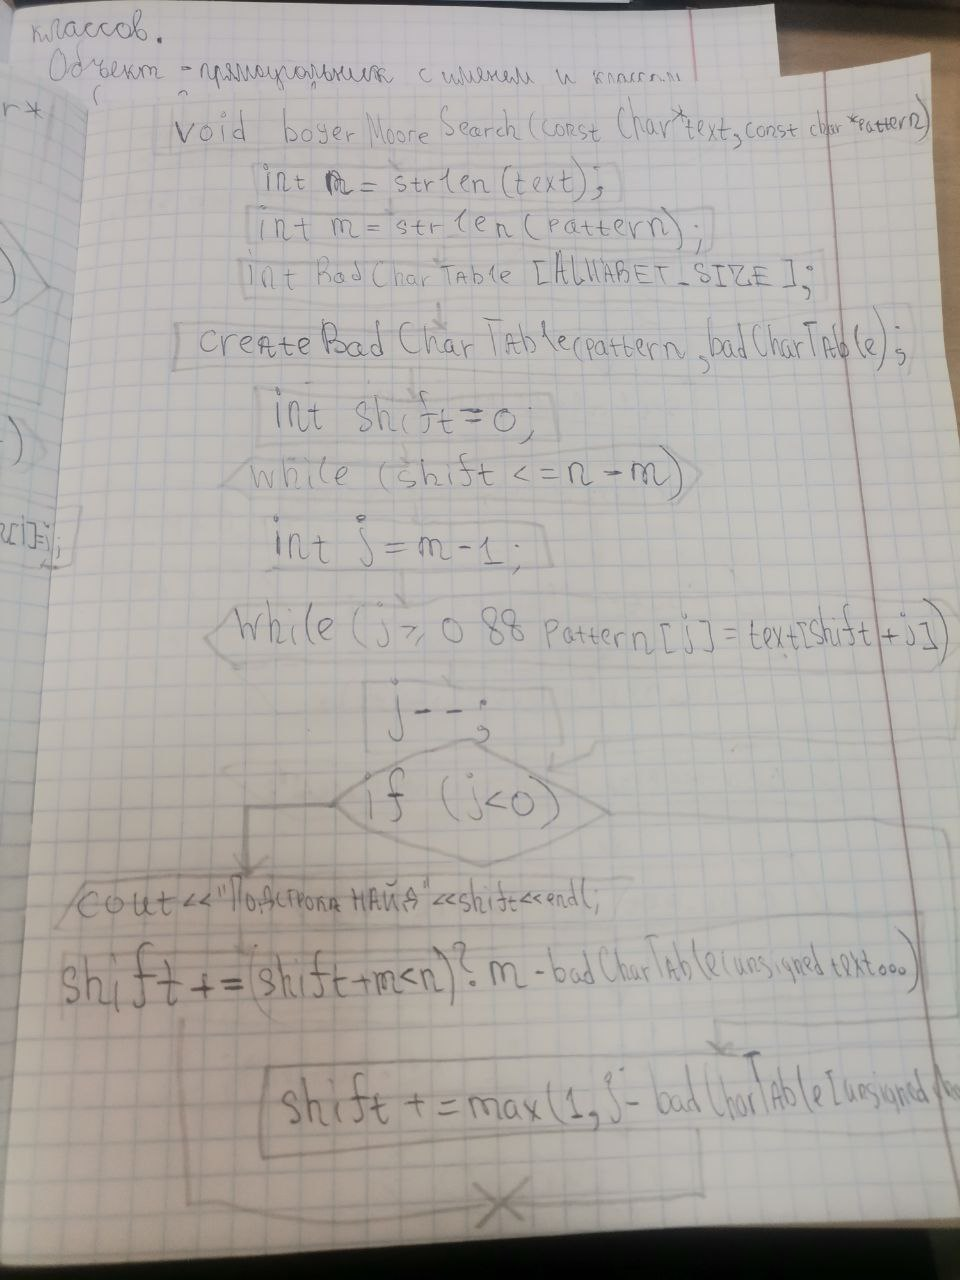 классов.
Объект - прямоугольник с именем и классом
r*
void boyer Moore Search (const Char*text, const char *pattern)
int n = strlen (text);
int m = strlen (pattern);
int Bad Char TAble [ALHABET_SIZE];
createBad Char TAble(pattern, badCharTAble);
int shift = 0;
while (shift <= n - m)
)
int j = m - 1;
[j]=j;
while (j ⩾ 0 && pattern [j] = text[shift + j])
j--;
if (j<0)
cout << "Подстрока НАЙД" << shift << endl;
shift += (shift+m<n)? m - badCharTAble(unsigned text...)
shift += max(1, j - badCharTAble[unsigned